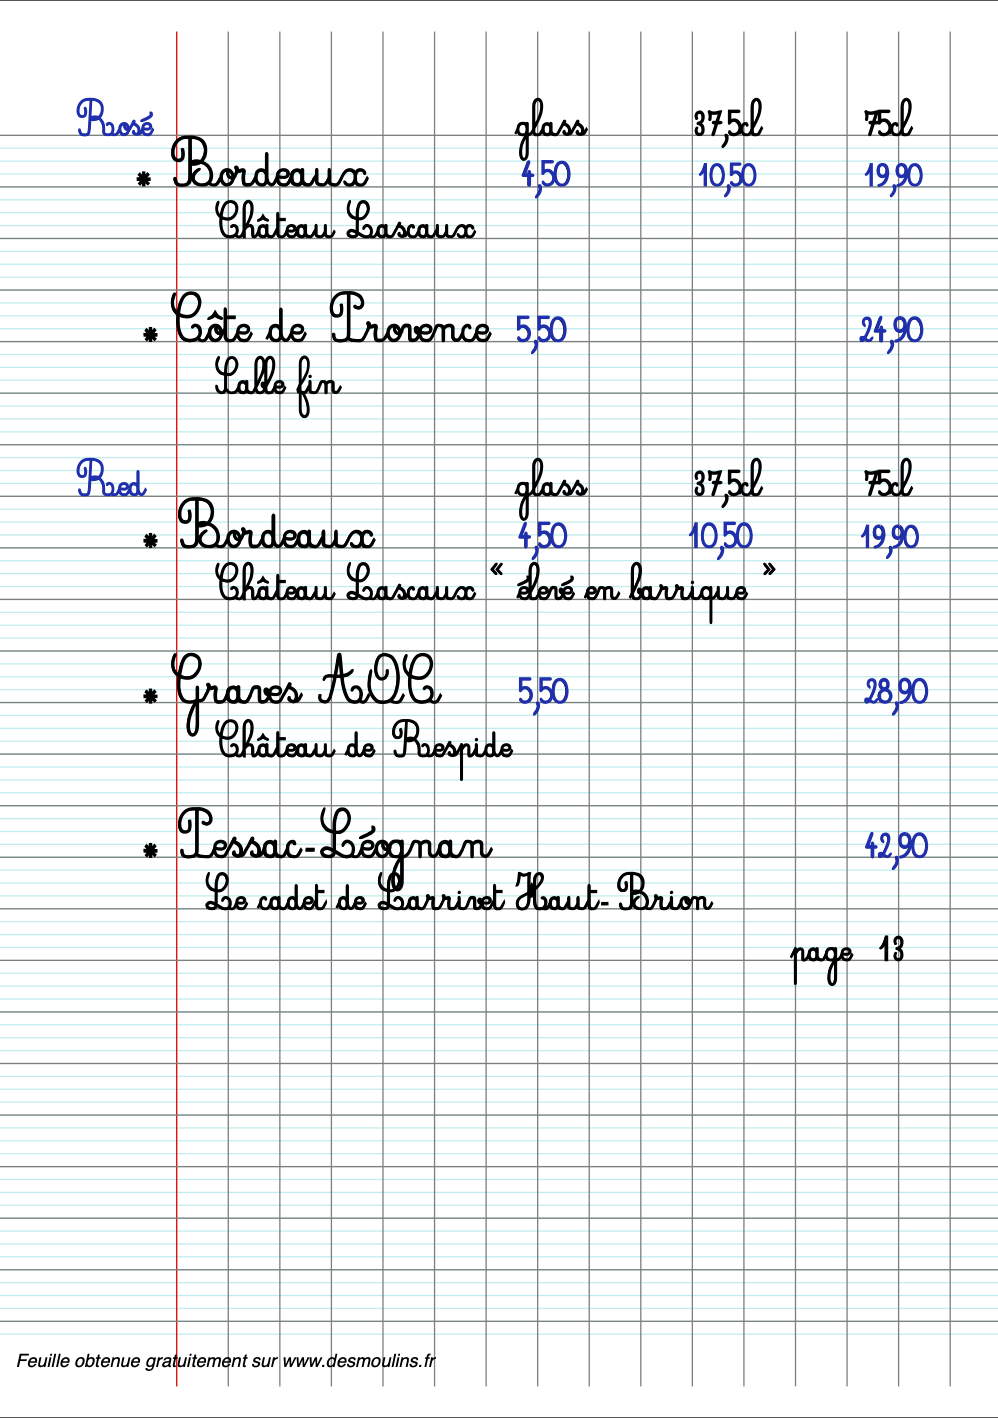 Rosé glass 37,5cl 75cl
* Bordeaux 4,50 10,50 19,90
Château Lascaux
* Côte de Provence 5,50 24,90
Sable fin
Red glass 37,5cl 75cl
* Bordeaux 4,50 10,50 19,90
Château Lascaux « élevé en barrique »
* Graves AOC 5,50 28,90
Château de Respide
* Pessac-Léognan 42,90
Le cadet de Larrivet Haut-Brion
page 13
Feuille obtenue gratuitement sur www.desmoulins.fr